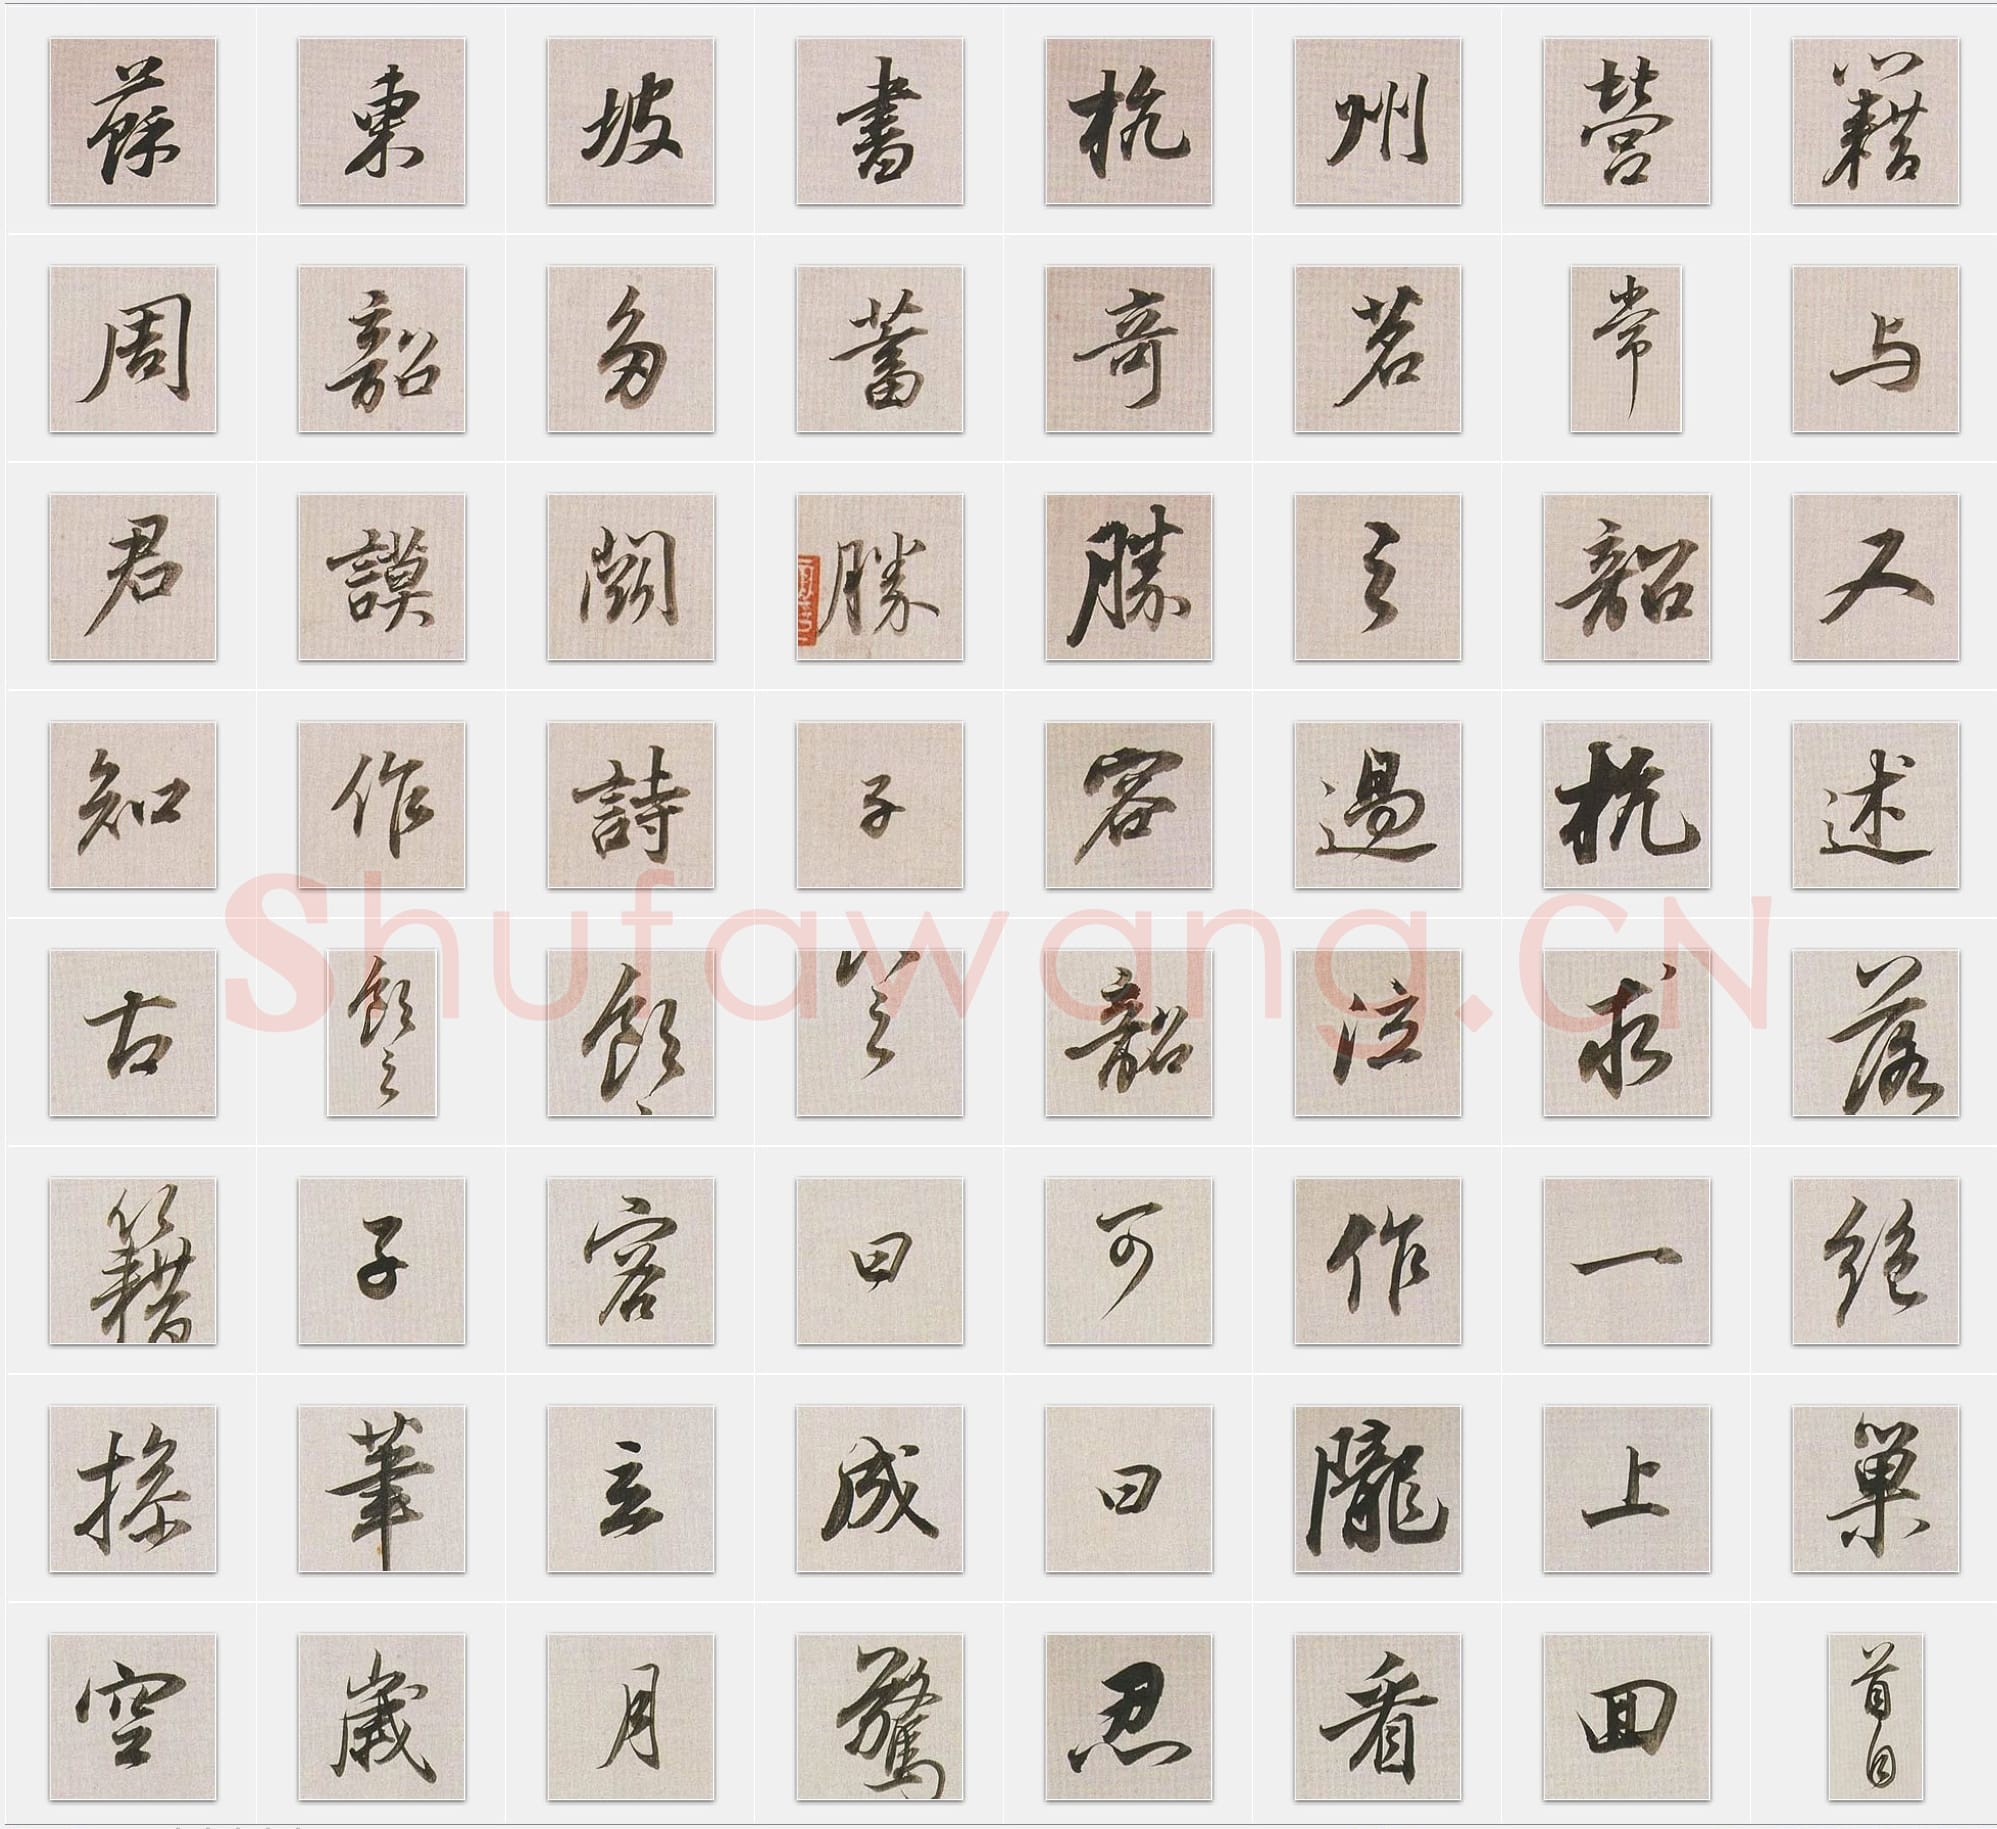 蘇東坡書杭州營籍
周韶多蓄奇茗常与
君謨鬬勝勝之韶又
知作詩子容過杭述
古飲之飲之韶泣求落
籍子容曰可作一絕
援筆立成曰隴上巢
空歲月驚忍看回首自
Shufawang.CN